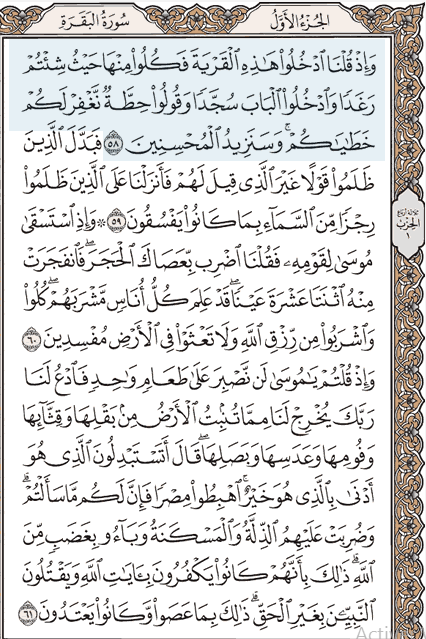 الجزء الأول
سورة البقرة
وَإِذْ قُلْنَا ادْخُلُوا هَٰذِهِ الْقَرْيَةَ فَكُلُوا مِنْهَا حَيْثُ شِئْتُمْ
رَغَدًا وَادْخُلُوا الْبَابَ سُجَّدًا وَقُولُوا حِطَّةٌ نَّغْفِرْ لَكُمْ
خَطَايَاكُمْ ۚ وَسَنَزِيدُ الْمُحْسِنِينَ ٥٨ فَبَدَّلَ الَّذِينَ
ظَلَمُوا قَوْلًا غَيْرَ الَّذِي قِيلَ لَهُمْ فَأَنزَلْنَا عَلَى الَّذِينَ ظَلَمُوا
رِجْزًا مِّنَ السَّمَاءِ بِمَا كَانُوا يَفْسُقُونَ ٥٩ ۞ وَإِذِ اسْتَسْقَىٰ
مُوسَىٰ لِقَوْمِهِ فَقُلْنَا اضْرِب بِّعَصَاكَ الْحَجَرَ ۖ فَانفَجَرَتْ
مِنْهُ اثْنَتَا عَشْرَةَ عَيْنًا ۖ قَدْ عَلِمَ كُلُّ أُنَاسٍ مَّشْرَبَهُمْ ۖ كُلُوا
وَاشْرَبُوا مِن رِّزْقِ اللَّهِ وَلَا تَعْثَوْا فِي الْأَرْضِ مُفْسِدِينَ ٦٠
وَإِذْ قُلْتُمْ يَا مُوسَىٰ لَن نَّصْبِرَ عَلَىٰ طَعَامٍ وَاحِدٍ فَادْعُ لَنَا
رَبَّكَ يُخْرِجْ لَنَا مِمَّا تُنبِتُ الْأَرْضُ مِن بَقْلِهَا وَقِثَّائِهَا
وَفُومِهَا وَعَدَسِهَا وَبَصَلِهَا ۖ قَالَ أَتَسْتَبْدِلُونَ الَّذِي هُوَ
أَدْنَىٰ بِالَّذِي هُوَ خَيْرٌ ۚ اهْبِطُوا مِصْرًا فَإِنَّ لَكُم مَّا سَأَلْتُمْ ۗ
وَضُرِبَتْ عَلَيْهِمُ الذِّلَّةُ وَالْمَسْكَنَةُ وَبَاءُو بِغَضَبٍ مِّنَ
اللَّهِ ۗ ذَٰلِكَ بِأَنَّهُمْ كَانُوا يَكْفُرُونَ بِآيَاتِ اللَّهِ وَيَقْتُلُونَ
النَّبِيِّينَ بِغَيْرِ الْحَقِّ ۗ ذَٰلِكَ بِمَا عَصَوا وَّكَانُوا يَعْتَدُونَ ٦١
الحزب
١